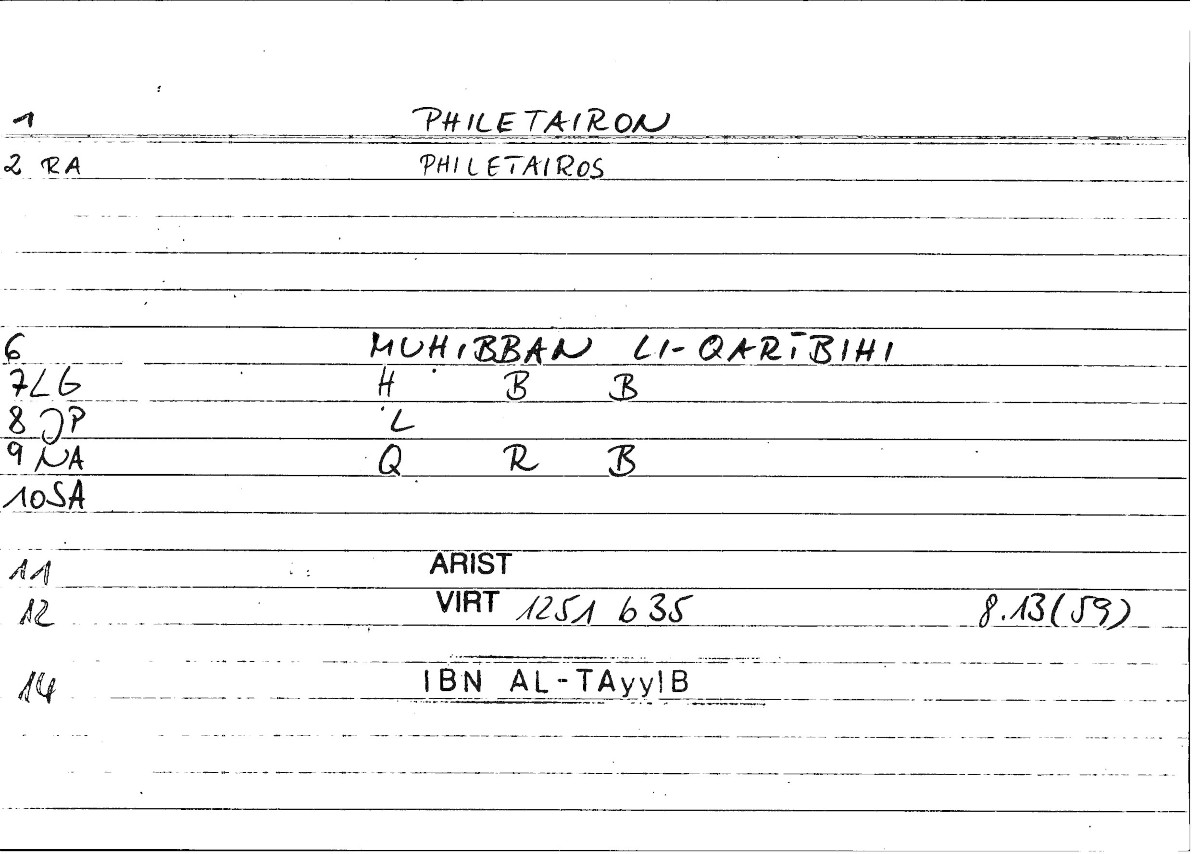 1 PHILETAIRON
2 RA PHILETAIROS
6 MUḤIBBAN LI-QARĪBIHI
7 LG Ḥ B B
8 JP L
9 NA Q R B
10 SA
11 ARIST
12 VIRT 1251 b 35 8.13(59)
14 IBN AL-TAyyIB